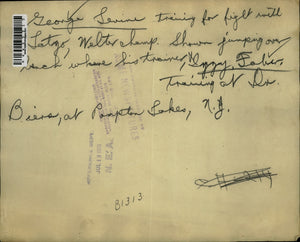 George Levine training for fight with
Latzo, Welter champ. Shown jumping on
bench where his trainer Izzy Faber
Training at Dr.
Biers, at Pompton Lakes, N.J.
N.E.A.
B1313